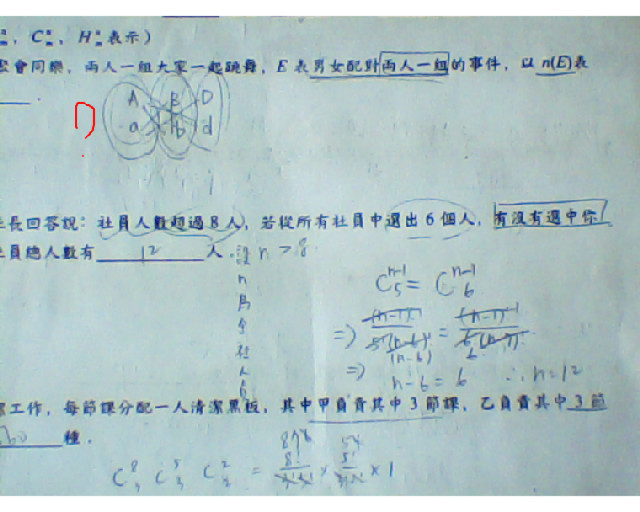 , C , H 表示)
會同樂，兩人一組大家一起跳舞，E 表男女配對兩人一組的事件，以 n(E)表
A B D
a b d
長回答說：社員人數超過 8 人，若從所有社員中選出 6 個人，有沒有選中你
員總人數有 12 人．設 n > 8.
n
為
全
社
人
員
C n-1 5 = C n-1 6
=> (n-1)! / 5!(n-6)! = (n-1)! / 6!
(n-6) 6
=> n-6 = 6 ∴ n=12
工作，每節課分配一人清潔黑板，其中甲負責其中 3 節課，乙負責其中 3 節
種．
C 8 3 C 5 3 C 2 2 = 8! × 5! × 1